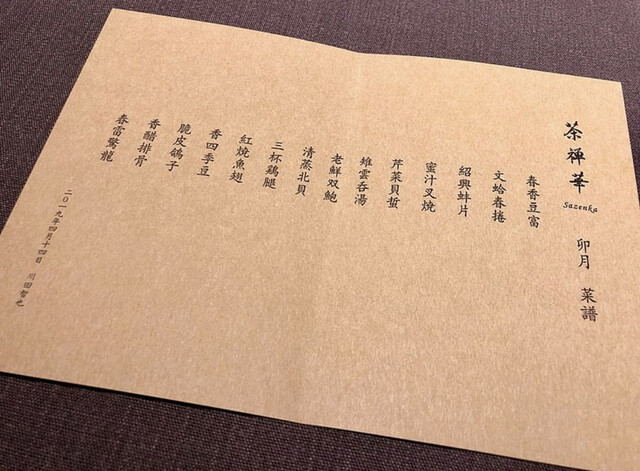 茶禅華
Sazenka
卯月 菜譜
春香豆富
文蛤春捲
紹興蚌片
蜜汁叉焼
芹菜貝蜇
雉雲呑湯
老鮮双鮑
清蒸北貝
三杯鶏腿
紅焼魚翅
香四季豆
脆皮鴿子
香醋排骨
春雷驚龍
二〇一九年四月十四日 川田智也